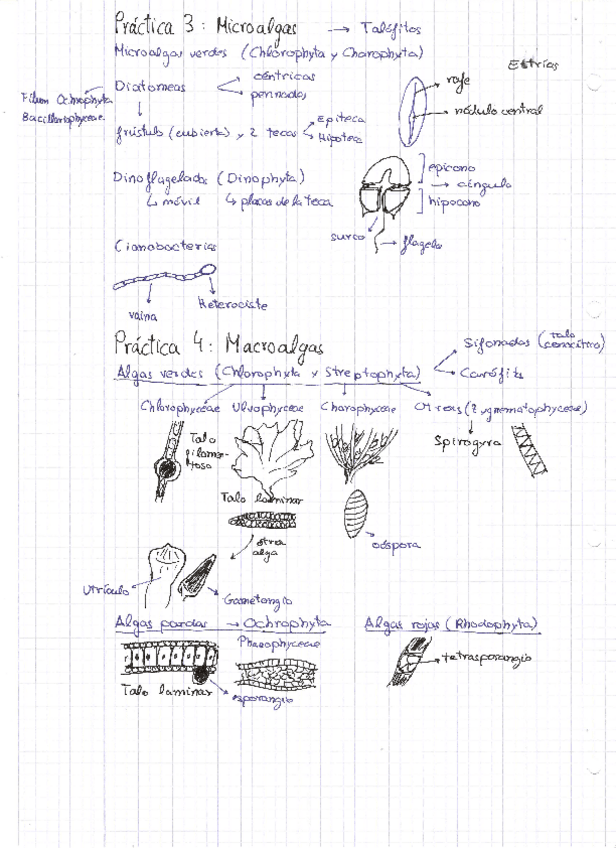 Práctica 3: Microalgas → Talófitos
Microalgas verdes (Chlorophyta y Charophyta)
Estrías
Diatomeas
céntricas
pennadas
Filum Ochrophyta
Bacillariophyceae
rafe
nódulo central
frústulo (cubierta) y 2 tecas
Epiteca
Hipoteca
Dinoflagelados (Dinophyta)
móvil
placas de la teca
epicono
cíngulo
hipocono
surco
flagelo
Cianobacterias
Heterociste
vaina
Práctica 4: Macroalgas
Sifonadas (talo cenocítico)
Algas verdes (Chlorophyta y Streptophyta)
Carófits
Chlorophyceae
Ulvophyceae
Charophyceae
Otras (Zygnematophyceae)
Talo filamentoso
Spirogyra
Talo laminar
oóspora
otra alga
Utrículo
Gametangio
Algas pardas → Ochrophyta
Algas rojas (Rhodophyta)
Phaeophyceae
tetrasporangio
Talo laminar
esporangio